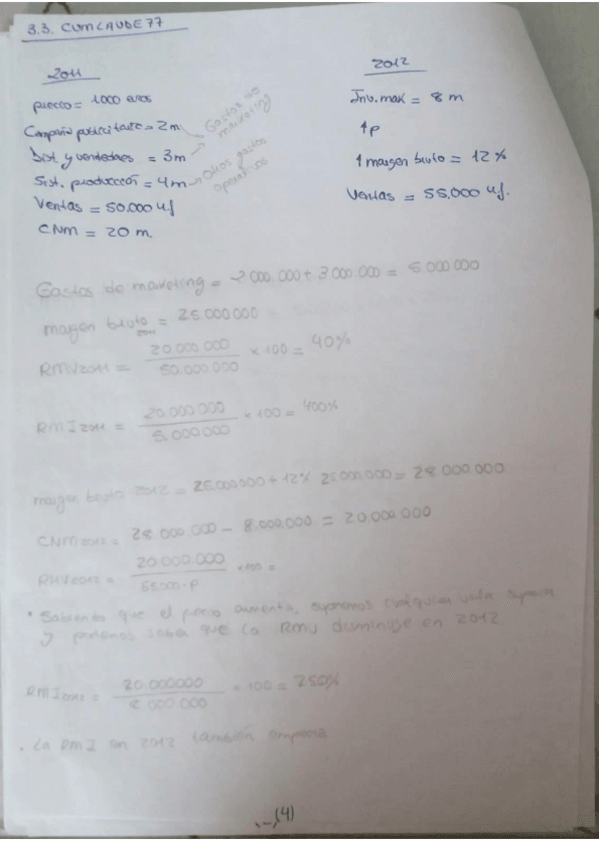 3.3. CUMLAUDE 77
2011
precio = 1000 euros
Campaña publicitaria = 2m
Dist. y vendedores = 3m
Gastos de marketing
Sist. producción = 4m → Otros gastos operativos
Ventas = 50.000 uf
CNM = 20 m.
2012
Inv. max = 8 m
↑p
↑ margen bruto = 12%
Ventas = 55.000 uf.
Gastos de marketing = 2.000.000 + 3.000.000 = 5.000.000
margen bruto 2011 = 25.000.000
RMV2011 = 20.000.000 / 50.000.000 × 100 = 40%
RMI2011 = 20.000.000 / 5.000.000 × 100 = 400%
margen bruto 2012 = 25.000.000 + 12% 25.000.000 = 28.000.000
CNM2012 = 28.000.000 - 8.000.000 = 20.000.000
RMV2012 = 20.000.000 / 55.000 · P ×100 =
* Sabiendo que el precio aumenta, suponemos cualquier valor superior
y podemos saber que la RMV disminuye en 2012
RMI2012 = 20.000000 / 8.000.000 × 100 = 250%
. La RMI en 2012 también empeora
(4)